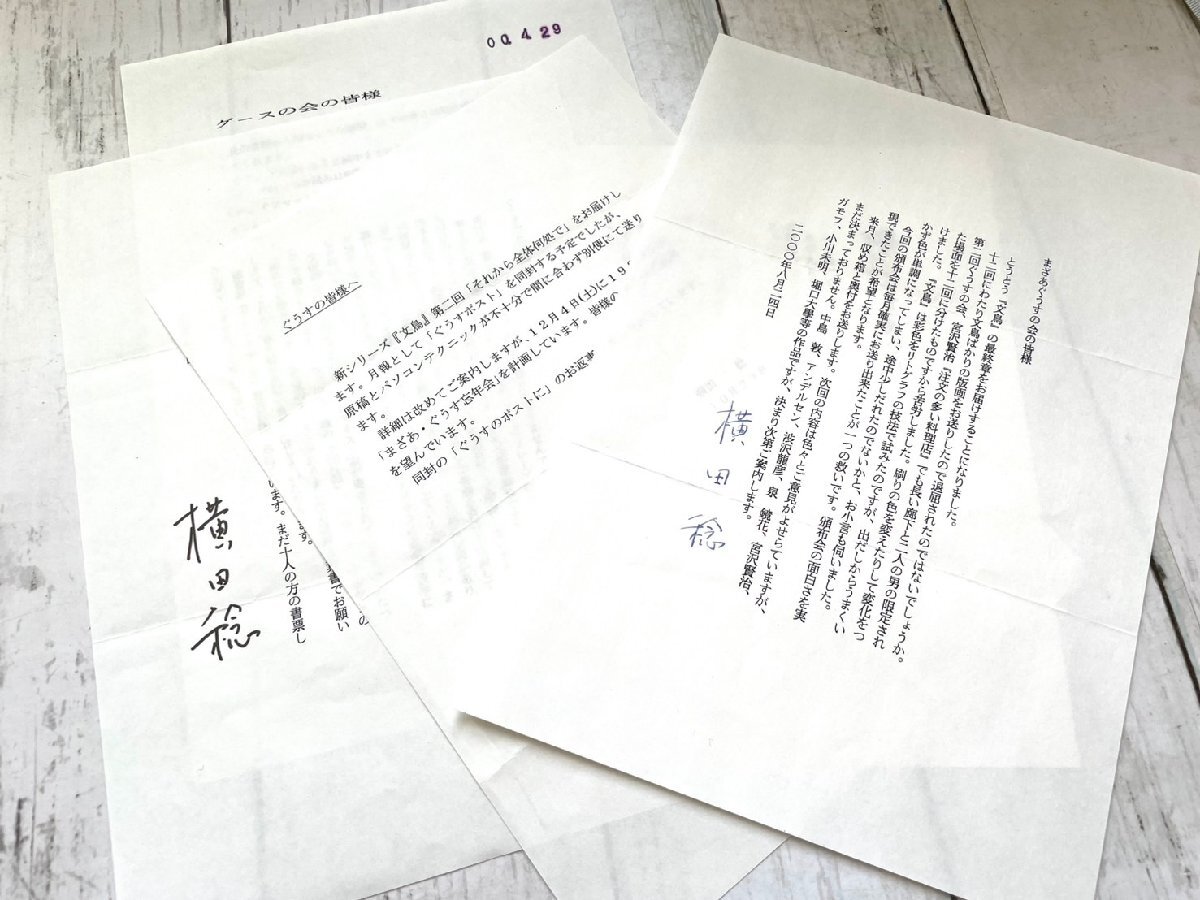 00.4.29
ケースの会の皆様
ぐうすの皆様へ
新シリーズ『文鳥』第二回「それから全体何処で」をお届けし
ます。月報として「ぐうすポスト」を同封する予定でしたが、
原稿とパソコンテクニックが不十分で間に合わず別便にて送り
ます。
詳細は改めてご案内しますが、12月4日(土)に19
「まざあ・ぐうす忘年会」を計画しています。皆様の
を望んでいます。
同封の「ぐうすのポストに」のお返事
の
書でお願い
ます。
います。まだ十人の方の書票し
横田稔
まざあぐうすの会の皆様
とうとう『文鳥』の最終章をお届けすることになりました。
十二回にわたり文鳥ばかりの版画をお送りしたので退屈されたのではないでしょうか。
第二回ぐうすの会、宮沢賢治『注文の多い料理店』でも長い廊下と二人の男の限定され
た場面を十二回に分けたものですから苦労しました。刷りの色を変えたりして変化をつ
けました。『文鳥』は彩色をリトグラフの技法で試みたのですが、出だしからうまくい
かず色が単調になってしまい、途中少しだれたのではないかと、お小言も伺いました。
今回の頒布会は毎月確実にお送り出来たことが一つの救いです。頒布会の面白さを実
現できたことが希望となります。
来月、収め箱と奥付をお送りします。次回の内容は色々とご意見がよせらていますが、
まだ決まっておりません。中島 敦、アンデルセン、渋沢龍彦、泉 鏡花、宮沢賢治、
ガモフ、小川未明、堀口大學等の作品ですが、決まり次第ご案内します。
二〇〇〇年八月二四日
横田稔